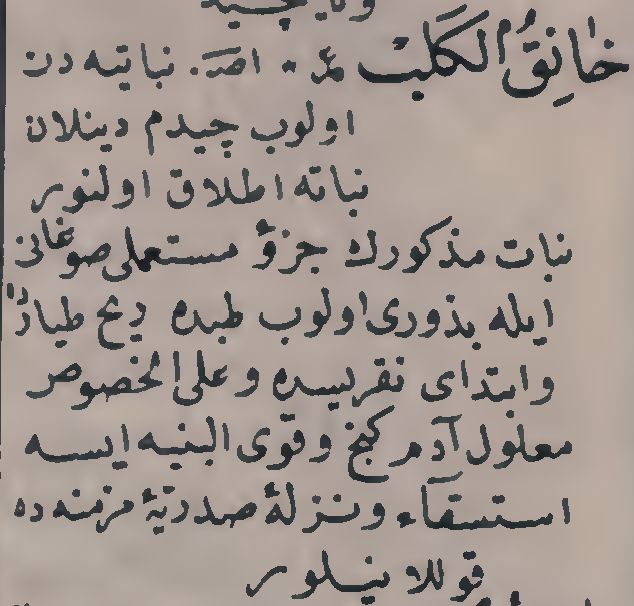 خانِقُ الكَلْبْ عر. اصـ. نباتيه دن
اولوب چيدم دينلان
نباته اطلاق اولنور
نبات مذكورك جزؤ مستعملى صوغانى
ايله بذورى اولوب طبده
وابتداى نقريسده وعلى الخصوص
معلول آدم كنج وقوى البنيه ايسه
استسقآء ونزلۀ صدريۀ مزمنه ده
قوللانيلور